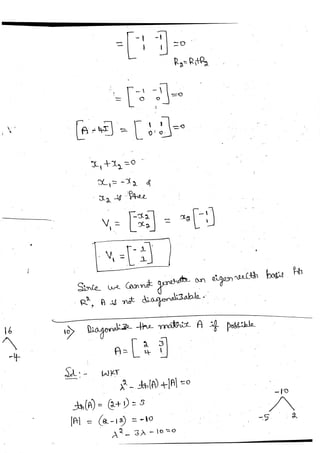 = [ -1 -1
1 1 ] = 0
R₂ = R₁+R₂
= [ -1 -1
0 0 ] = 0
[A - 4I] = [ 1 1
0 0 ] = 0
x₁ + x₂ = 0
x₁ = -x₂ &
x₂ is free
V₁ = [ -x₂
x₂ ] = x₂ [ -1
1 ]
V₁ = [ -1
1 ]
Since we cannot generate an eigen vecth basis for
R², A is not diagonalizable.
16
-4
10) Diagonalize the matrix A if possible
A = [ 2 3
4 1 ]
Sol :- WKT
λ² - tr(A) + |A| = 0
tr(A) = (2+1) = 3
|A| = (2-12) = -10
λ² - 3λ - 10 = 0
-10
-5 2